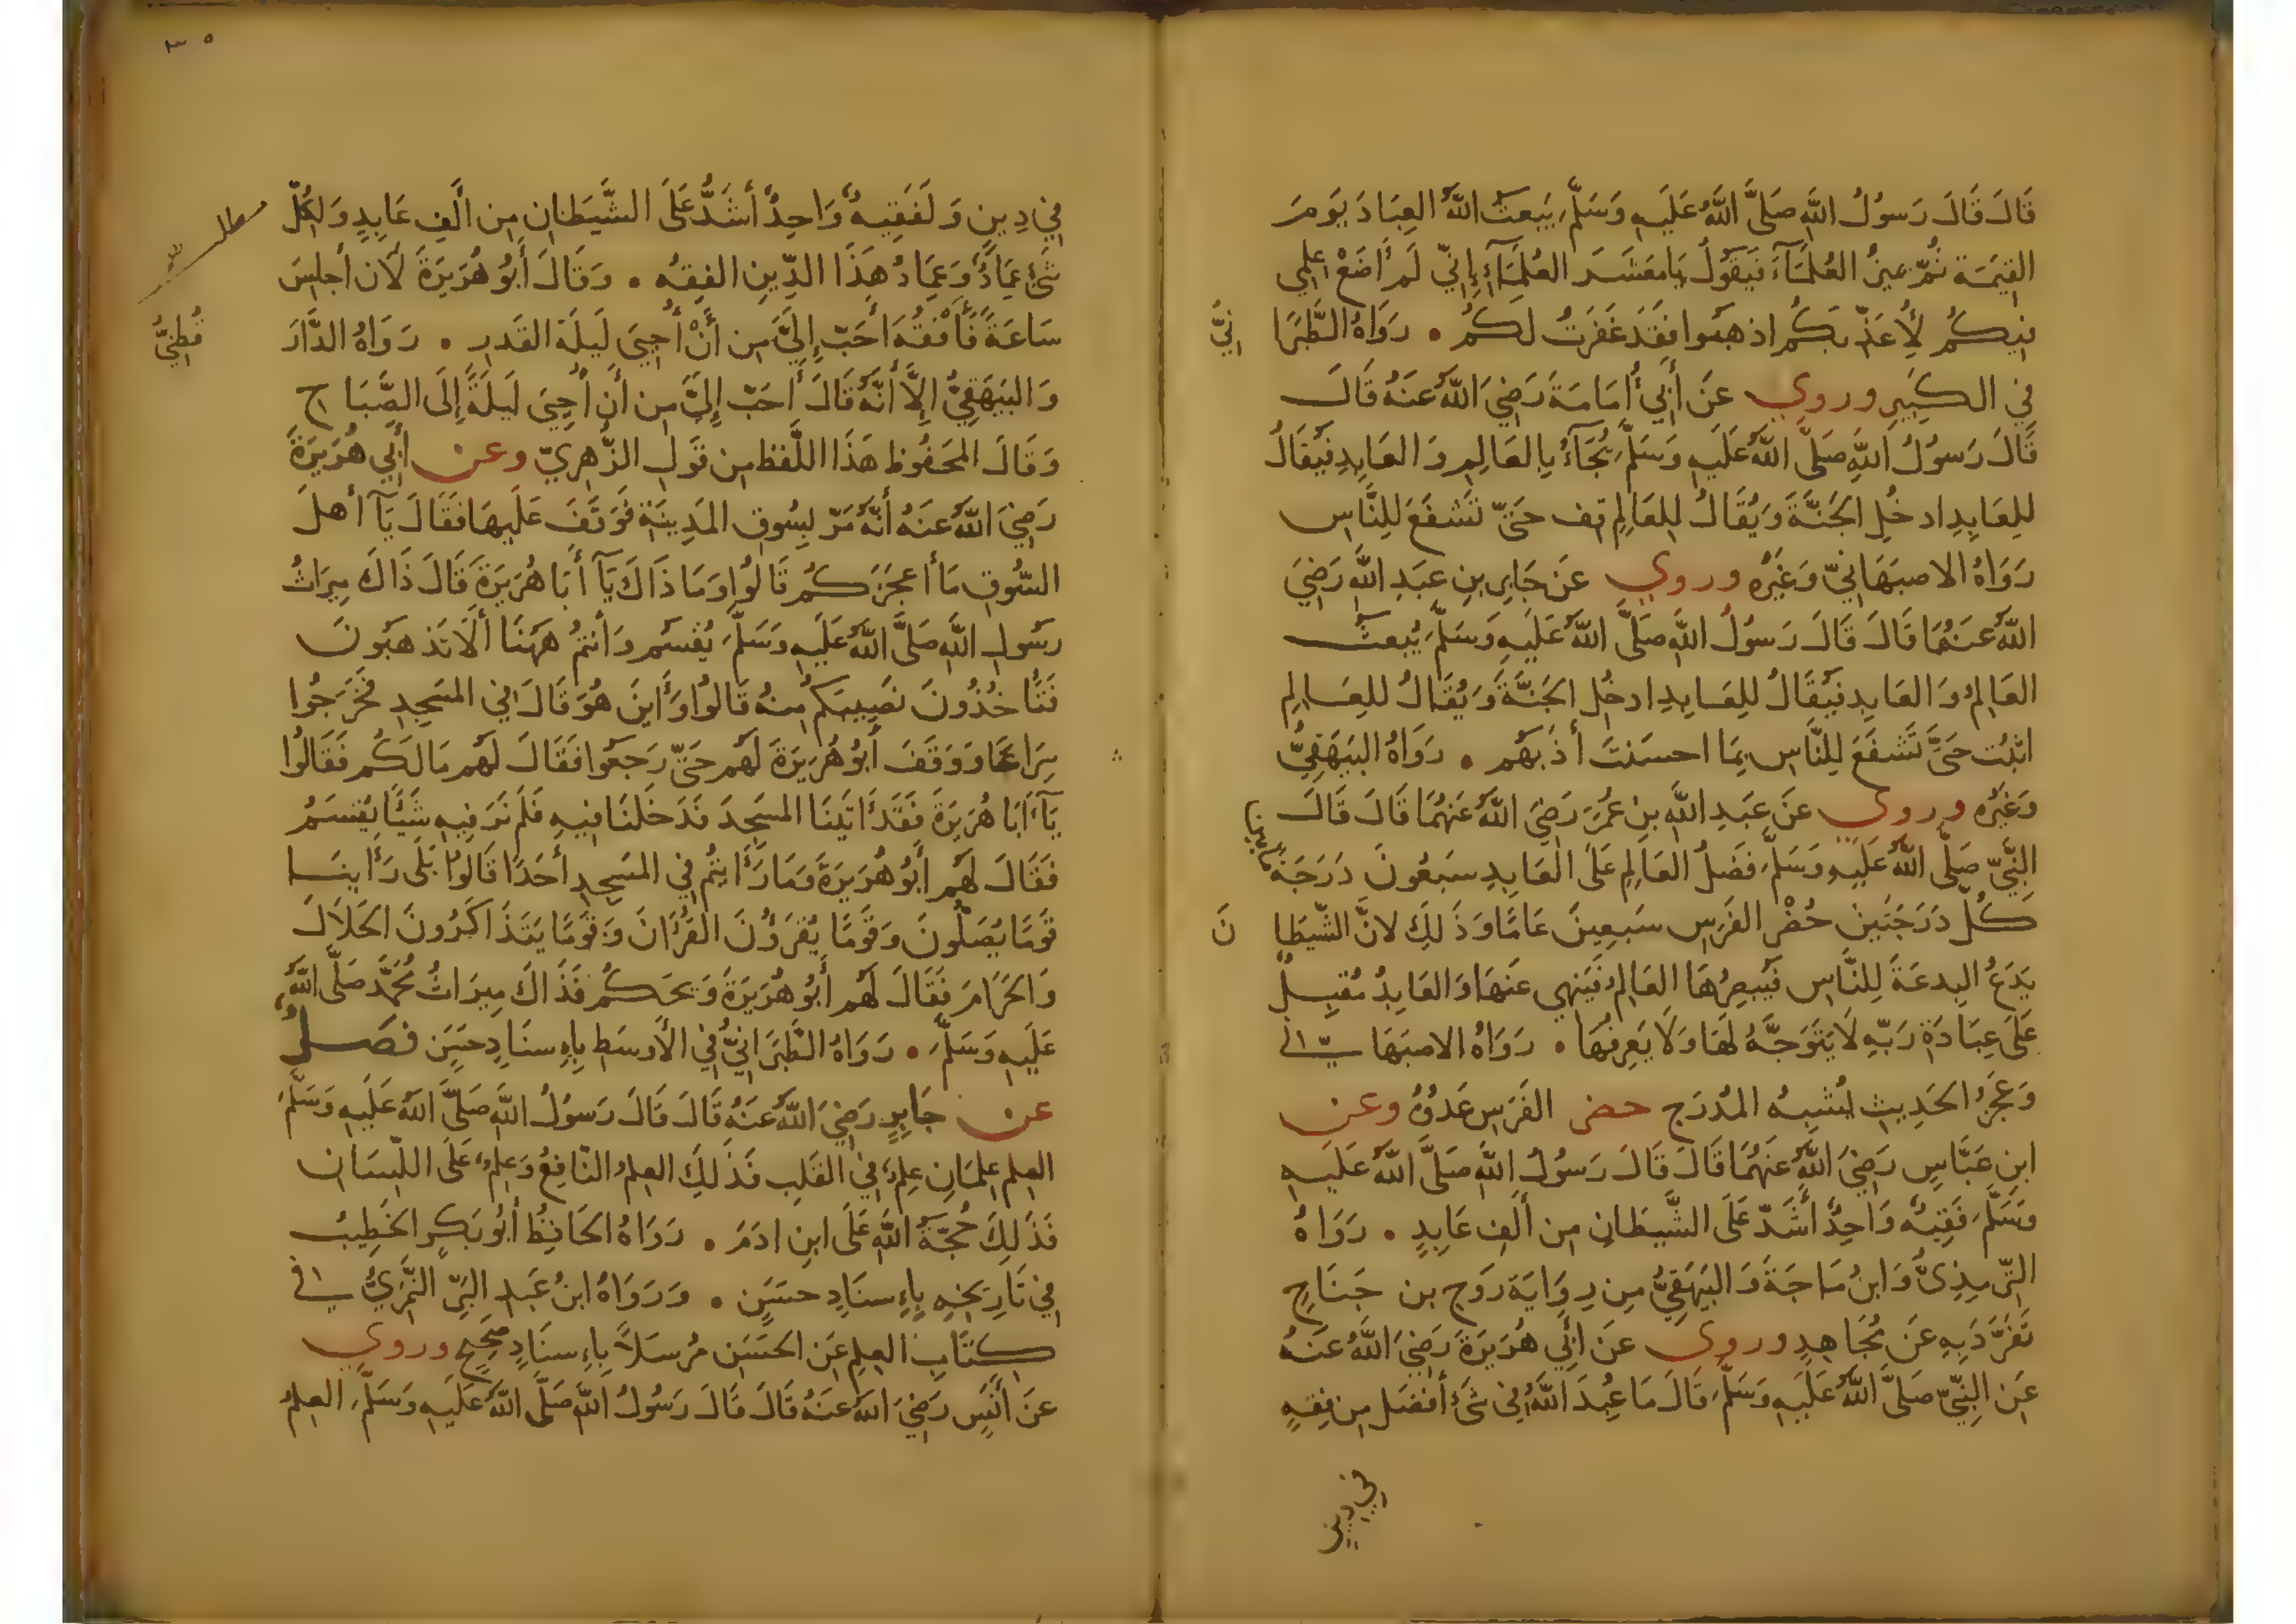 قَالَ قَالَ رَسُولُ اللَّهِ صَلَّى اللَّهُ عَلَيهِ وَسَلَّمَ يَبعَثُ اللَّهُ العِبَادَ يَومَ
القِيٰمَةِ ثُمَّ يميزُ العُلَمَآءَ فَيَقُولُ يَامَعشَرَ العُلَمَآءِ إِنِّي لَم أَضَعْ عِلمِي
فِيكُم لِأُعَذِّبَكُم اذهَبُوا فَقَد غَفَرتُ لَكُم . رَوَاهُ الطَّبَرَا نِيُّ
فِي الكَبِيرِ وروي عَن أَبِي أُمَامَةَ رَضِيَ اللَّهُ عَنهُ قَالَ
قَالَ رَسُولُ اللَّهِ صَلَّى اللَّهُ عَلَيهِ وَسَلَّمَ يُجَآءُ بِالعَالِمِ وَالعَابِدِ فَيُقَالُ
لِلعَابِدِ ادخُلِ الجَنَّةَ وَيُقَالُ لِلعَالِمِ قِف حَتَّى تَشفَعَ لِلنَّاسِ
رَوَاهُ الاصبَهَانِيُّ وَغَيرُه وروي عَن جَابِرِ بنِ عَبدِ اللَّهِ رَضِيَ
اللَّهُ عَنهُمَا قَالَ قَالَ رَسُولُ اللَّهِ صَلَّى اللَّهُ عَلَيهِ وَسَلَّمَ يُبعَثُ
العَالِمُ وَالعَابِد فَيُقَالُ لِلعَابِدِ ادخُلِ الجَنَّةَ وَيُقَالُ لِلعَالِمِ
اثبُت حَتَّى تَشفَعَ لِلنَّاسِ بِمَا احسَنتَ أَدَبَهُم . رَوَاهُ البَيهَقِيُّ
وَغَيرُه وروي عَن عَبدِ اللَّهِ بنِ عُمَرَ رَضِيَ اللَّهُ عَنهُمَا قَالَ قَالَ
النَّبِيّ صَلَّى اللَّهُ عَلَيهِ وَسَلَّمَ فَضلُ العَالِمِ عَلَى العَابِدِ سَبعُونَ دَرَجَةً مَا بين
كُلِّ دَرَجَتَينِ حُضْرُ الفَرَسِ سَبعِينَ عَامًا وَذَلِكَ لانَّ الشَّيطَا نَ
يَدَعُ البِدعَةَ لِلنَّاسِ فَيُبصِرُهَا العَالِمُ فَيَنهى عَنهَا وَالعَابِدُ مُقبِلٌ
عَلَى عِبَادَةِ رَبِّهِ لَا يَتَوَجَّهُ لَهَا وَلَا يَعرِفُهَا . رَوَاهُ الاصبَهَانِيّ
وَعَجزُ الحَدِيثِ يُشبِهُ المُدرَج حضر الفَرَسِ عَدوُهُ وعن
ابنِ عَبَّاسٍ رَضِيَ اللَّهُ عَنهُمَا قَالَ قَالَ رَسُولُ اللَّهِ صَلَّى اللَّهُ عَلَيهِ
وَسَلَّمَ فَقِيهٌ وَاحِدٌ أَشَدُّ عَلَى الشَّيطَانِ مِن أَلفِ عَابِدٍ . رَوَاهُ
التِّرمِذِيُّ وَابنُ مَاجَةَ وَالبَيهَقِيُّ مِن رِوَايَةِ رَوحِ بنِ جَنَاحٍ
تَفَرَّدَ بِهِ عَن مُجَاهِدٍ وروي عَن أَبِي هُرَيرَةَ رَضِيَ اللَّهُ عَنهُ
عَنِ النَّبِيِّ صَلَّى اللَّهُ عَلَيهِ وَسَلَّمَ قَالَ مَا عُبِدَ اللَّهُ فِي شَئٍ أَفضَل مِن فِقهٍ
في دين
٣٥
فِي دِينٍ وَلَفَقِيهٌ وَاحِدٌ أَشَدُّ عَلَى الشَّيطَانِ مِن أَلفِ عَابِدٍ وَلِكُلِّ
شَئٍ عِمَادٌ وَعِمَادُ هَذَا الدِّينِ الفِقهُ . وَقَالَ أَبُو هُرَيرَةَ لَأَن أَجلِسَ
سَاعَةً فَأَفقَهُ أَحَبُّ إِلَيَّ مِن أَنْ أُحيِيَ لَيلَةَ القَدرِ . رَوَاهُ الدَّارَ قُطنِيُّ
وَالبَيهَقِيُّ إِلَّا أَنَّهُ قَالَ أَحَبُّ إِلَيَّ مِن أَن أُحيِيَ لَيلَةً إِلَى الصَّبَاحِ
وَقَالَ المَحفُوظ هَذَا اللَّفظ مِن قَولِ الزُّهرِيِّ وعن أَبِي هُرَيرَةَ
رَضِيَ اللَّهُ عَنهُ أَنَّهُ مَرَّ بِسُوقِ المَدِينَةِ فَوَقَفَ عَلَيهَا فَقَالَ يَآ أَهلَ
السُّوقِ مَا أَعجَزَكُم قَالُوا وَمَا ذَاكَ يَآ أَبَا هُرَيرَةَ قَالَ ذَاكَ مِيرَاثُ
رَسُولِ اللَّهِ صَلَّى اللَّهُ عَلَيهِ وَسَلَّمَ يُقسَمُ وَأَنتُم هَهُنَا أَلَا تَذهَبُونَ
فَتَأخُذُونَ نَصِيبَكُم مِنهُ قَالُوا وَأَينَ هُوَ قَالَ فِي المَسجِدِ فَخَرَجُوا
سِرَاعًا وَوَقَفَ أَبُو هُرَيرَةَ لَهُم حَتَّى رَجَعُوا فَقَالَ لَهُم مَا لَكُم فَقَالُوا
يَآ أَبَا هُرَيرَةَ فَقَد أَتَينَا المَسجِدَ فَدَخَلنَا فِيهِ فَلَم نَرَ فِيهِ شَيئًا يُقسَمُ
فَقَالَ لَهُم أَبُو هُرَيرَةَ وَمَا رَأَيتُم فِي المَسجِدِ أَحَدًا قَالُوا بَلَى رَأَينَا
قَومًا يُصَلُّونَ وَقَومًا يَقرَؤُنَ القُرآنَ وَقَومًا يَتَذَاكَرُونَ الحَلَالَ
وَالحَرَامَ فَقَالَ لَهُم أَبُو هُرَيرَةَ وَيحَكُم فَذَاكَ مِيرَاثُ مُحَمَّدٍ صَلَّى اللَّهُ
عَلَيهِ وَسَلَّمَ . رَوَاهُ الطَّبَرَانِيُّ فِي الأَوسَط بِإِسنَادٍ حَسَنٍ فَصلٌ
عن جَابِرٍ رَضِيَ اللَّهُ عَنهُ قَالَ قَالَ رَسُولُ اللَّهِ صَلَّى اللَّهُ عَلَيهِ وَسَلَّمَ
العِلم عِلمَانِ عِلمٌ فِي القَلبِ فَذَلِكَ العِلمُ النَّافِعُ وَعِلمٌ عَلَى اللِّسَانِ
فَذَلِكَ حُجَّةُ اللَّهِ عَلَى ابنِ ادَمَ . رَوَاهُ الحَافِظُ أَبُو بَكرٍ الخَطِيبُ
فِي تَارِيخِهِ بِإِسنَادٍ حَسَنٍ . وَرَوَاهُ ابنُ عَبدِ البَرِّ النَّمَرِيُّ فِي
كِتَابِ العِلمِ عَنِ الحَسَنِ مُرسَلًا بِإِسنَادٍ صَحِيحٍ وروي
عَن أَنَسٍ رَضِيَ اللَّهُ عَنهُ قَالَ قَالَ رَسُولُ اللَّهِ صَلَّى اللَّهُ عَلَيهِ وَسَلَّمَ العِلمُ